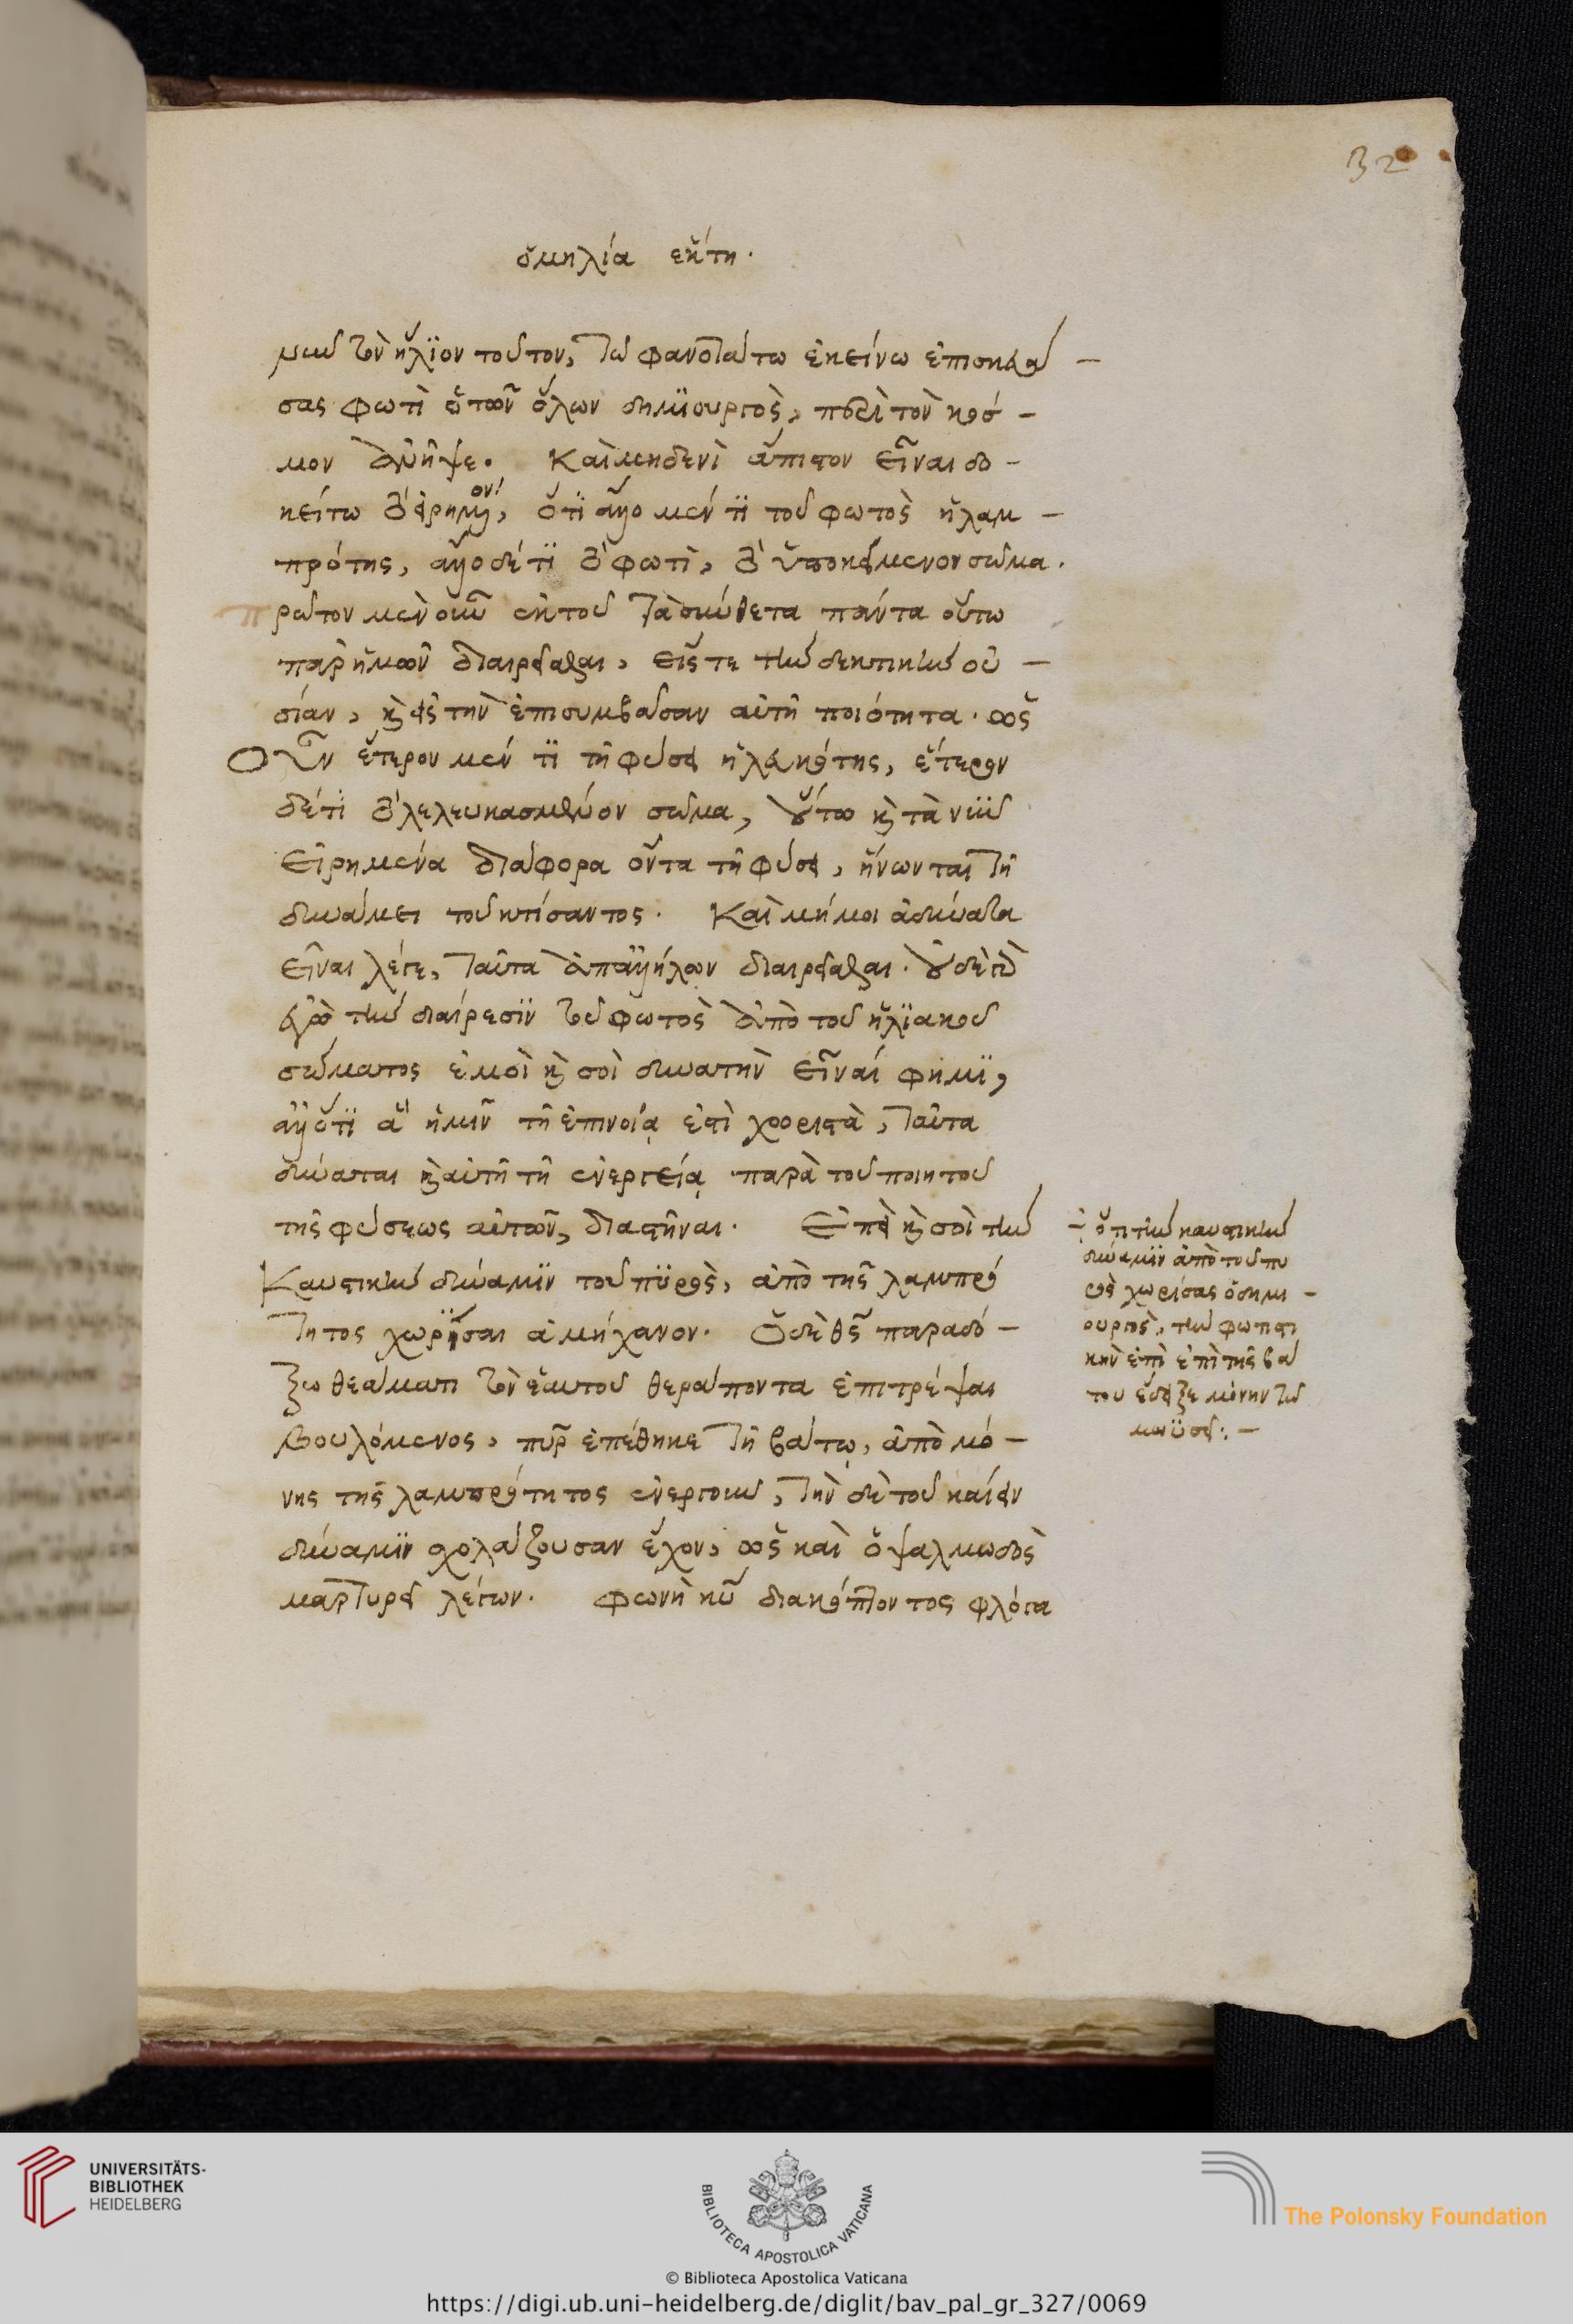 32
ὁμηλία ἕκτη.
μεν τὸν ἥλιον τοῦτον, τῶ φανοτάτω ἐκείνω ἐπισκευά –
σας φωτὶ ὁ τῶν ὅλων δημϊουργὸς, περὶ τὸν κόσ –
μον ἀνῆψε. Καὶ μηδενὶ ἄπιστον εἶναι δο –
κείτω τὸ εἰρημένον, ὅτι ἄλλο μέν τι τοῦ φωτὸς ἡ λαμ –
πρότης, ἄλλο δέ τι τὸ φωτὶ, τὸ ὑποκείμενον σῶμα.
πρῶτον μὲν οὖν ἐκ τοῦ τὰ σύνθετα πάντα οὕτω
παρ ἡμῶν διαιρεῖσθαι, εἴς τε τὴν δεκτικὴν οὐ –
σίαν, καὶ εἰς τὴν ἐπισυμβᾶσαν αὐτῆ ποιότητα. ὡς
οὖν ἕτερον μέν τι τῆ φύσει ἡ λευκότης, ἕτερον
δέ τι τὸ λελευκασμένον σῶμα, οὕτω καὶ τὰ νῦν
εἰρημένα διάφορα ὄντα τῆ φύσει, ἥνωνται τῆ
δυνάμει τοῦ κτίσαντος. Καὶ μή μοι ἀδύνατα
εἶναι λέγε, ταῦτα ἀπ ἀλλήλων διαιρεῖσθαι. οὐδὲ γὰρ
ἐγὼ τὴν διαίρεσϊν τοῦ φωτὸς ἀπὸ τοῦ ἡλϊακοῦ
σώματος ἐμοὶ καὶ σοὶ δυνατὴν εἶναί φημϊ,
ἀλλ ὅτϊ ἃ ἡμῖν τῆ ἐπινοίᾳ ἐστὶ χωριστὰ, ταῦτα
δύναται καὶ αὐτῆ τῆ ἐνεργείᾳ παρὰ τοῦ ποιητοῦ
τῆς φύσεως αὐτῶν, διαστῆναι. Ἐπεὶ καὶ σοὶ τὴν
Καυστικὴν δύναμϊν τοῦ πϋρὸς, ἀπὸ τῆς λαμπρό
τητος χωρῆσαι ἀμήχανον. Ὁ δὲ θς παραδό –
ξω θεάματι τὸν ἑαυτοῦ θεράποντα ἐπιτρέψαι
βουλόμενος, πῦρ ἐπέθηκε τῆ βάτῳ, ἀπὸ μό –
νης τῆς λαμπρότητος ἐνεργοὺν, τὴν δὲ τοῦ καίειν
δύναμϊν σχολάζουσαν ἔχον, ὡς καὶ ὁ ψαλμωδὸς
μαρτυρεῖ λέγων. φωνὴ κυ διακόπτοντος φλόγα
÷ ὅτι τὴν καυστικὴν
δύναμϊν ἀπὸ τοῦ πυ
ρὸς χωρίσας ὁ δημι –
ουργὸς, τὴν φωτιστι
κὴν ἐπὶ ἐπὶ τῆς βά
του ἔδειξε μόνην τῶ
μωϋσεῖ:. –
UNIVERSITÄTS-
BIBLIOTHEK
HEIDELBERG
BIBLIOTECA APOSTOLICA VATICANA
The Polonsky Foundation
© Biblioteca Apostolica Vaticana
https://digi.ub.uni-heidelberg.de/diglit/bav_pal_gr_327/0069